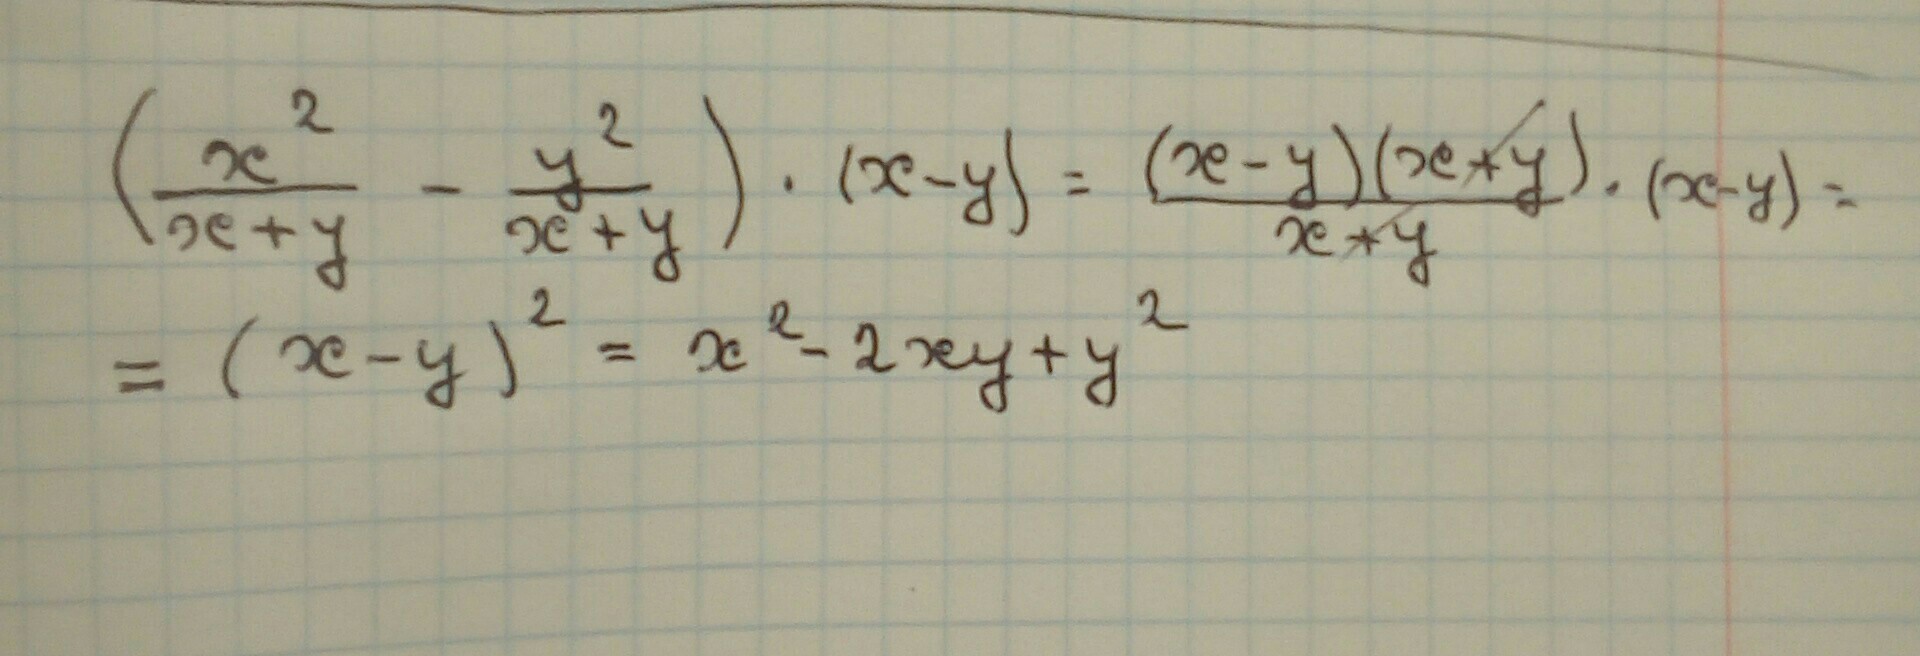 (x²/(x+y) - y²/(x+y)) · (x-y) = (x-y)(x+y)/(x+y) · (x-y) =
= (x-y)² = x² - 2xy + y²